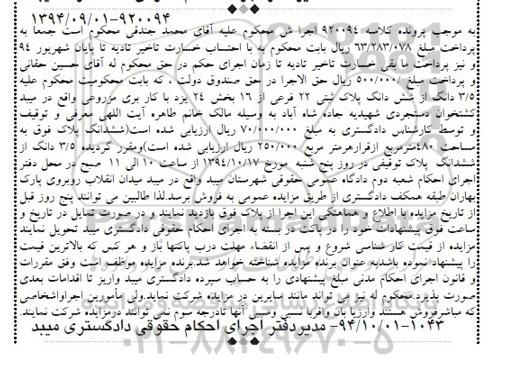 ۹۲۰۰۹۴-۱۳۹۴/۰۹/۰۱
به موجب پرونده کلاسه ۹۲۰۰۹۴ اجرا ش محکوم علیه آقای محمد جندقی محکوم است جمعا به
پرداخت مبلغ ۶۳/۲۸۳/۰۷۸ ریال بابت محکوم به با احتساب خسارت تاخیر تادیه تا پایان شهریور ۹۴
و نیز پرداخت ما بقی خسارت تاخیر تادیه تا زمان اجرای حکم در حق محکوم له آقای حسین حقانی
و پرداخت مبلغ ۵۰۰/۰۰۰ ریال حق الاجرا در حق صندوق دولت ، که بابت محکومیت محکوم علیه
۳/۵ دانگ از شش دانگ پلاک ثبتی ۲۲ فرعی از ۱۶ بخش ۲۴ یزد با کار بری مزروعی واقع در میبد
کشتخوان دستجردی شهیدیه جاده شاه آباد به وسیله مالک خانم طاهره آیت اللهی معرفی و توقیف
و توسط کارشناس دادگستری به مبلغ ۷۰/۰۰۰/۰۰۰ ریال ارزیابی شده است(ششدانگ پلاک فوق به
مساحت ۴۸۰مترمربع ازقرارهرمتر مربع ۲۵۰/۰۰۰ ریال ارزیابی شده است)ومقرر گردیده ۳/۵ دانگ از
ششدانگ پلاک توقیفی در روز پنج شنبه مورخ ۱۳۹۴/۱۰/۱۷ از ساعت ۱۰ الی ۱۱ صبح در محل دفتر
اجرای احکام شعبه دوم دادگاه عمومی حقوقی شهرستان میبد واقع در میبد میدان انقلاب روبروی پارک
بهاران طبقه همکف دادگستری از طریق مزایده عمومی به فروش برسد.لذا طالبین می توانند پنج روز قبل
از تاریخ مزایده با اطلاع و هماهنگی این اجرا از پلاک فوق بازدید نمایند و در صورت تمایل در تاریخ و
ساعت فوق پیشنهادات خود را در پاکت در بسته به اجرای احکام حقوقی دادگستری میبد تحویل نمایند
مزایده از قیمت کارشناسی شروع و پس از انقضاء مهلت درب پاکتها باز و هر کس که بالاترین قیمت
را پیشنهاد نموده باشدبه عنوان برنده مزایده شناخته خواهد شد.برنده مزایده موظف است وفق مقررات
و قانون اجرای احکام مدنی مبلغ پیشنهادی را به حساب سپرده دادگستری میبد واریز تا اقدامات بعدی
صورت پذیرد.محکوم له نیز می تواند مانند سایرین در مزایده شرکت نماید.ولی مأمورین اجراواشخاصی
که مباشرفروش هستند وارزیا بان واقربا نسبی وسببی آنها تادرجه سوم نمی توانند درمزایده شرکت نمایند.
۱۰۴۳-۹۴/۱۰/۰۱- مدیردفتر اجرای احکام حقوقی دادگستری میبد
۰۲۱-۸۸۳۴۹۶۷۰-۵